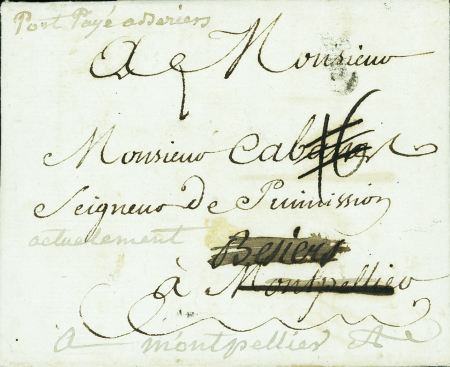 Port Payé a Beziers
A Monsieur
Monsieur
Seigneur de Puimission
actuelement
Besiers
à Montpellier
A montpellier